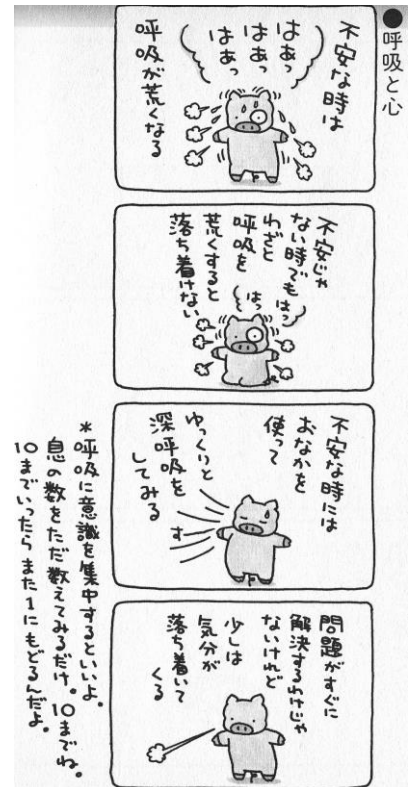 ●呼吸と心
不安な時は
はあっ
はあっ
はあっ
呼吸が荒くなる
不安じゃ
ない時でも
わざと
呼吸を
荒くすると
落ち着けない
はっ
はっ
不安な時には
おなかを
使って
ゆっくりと
深呼吸を
してみる
す
問題がすぐに
解決するわけじゃ
ないけれど
少しは
気分が
落ち着いて
くる
*呼吸に意識を集中するといいよ。
息の数をただ数えてみるだけ。10までね。
10までいったらまた1にもどるんだよ。